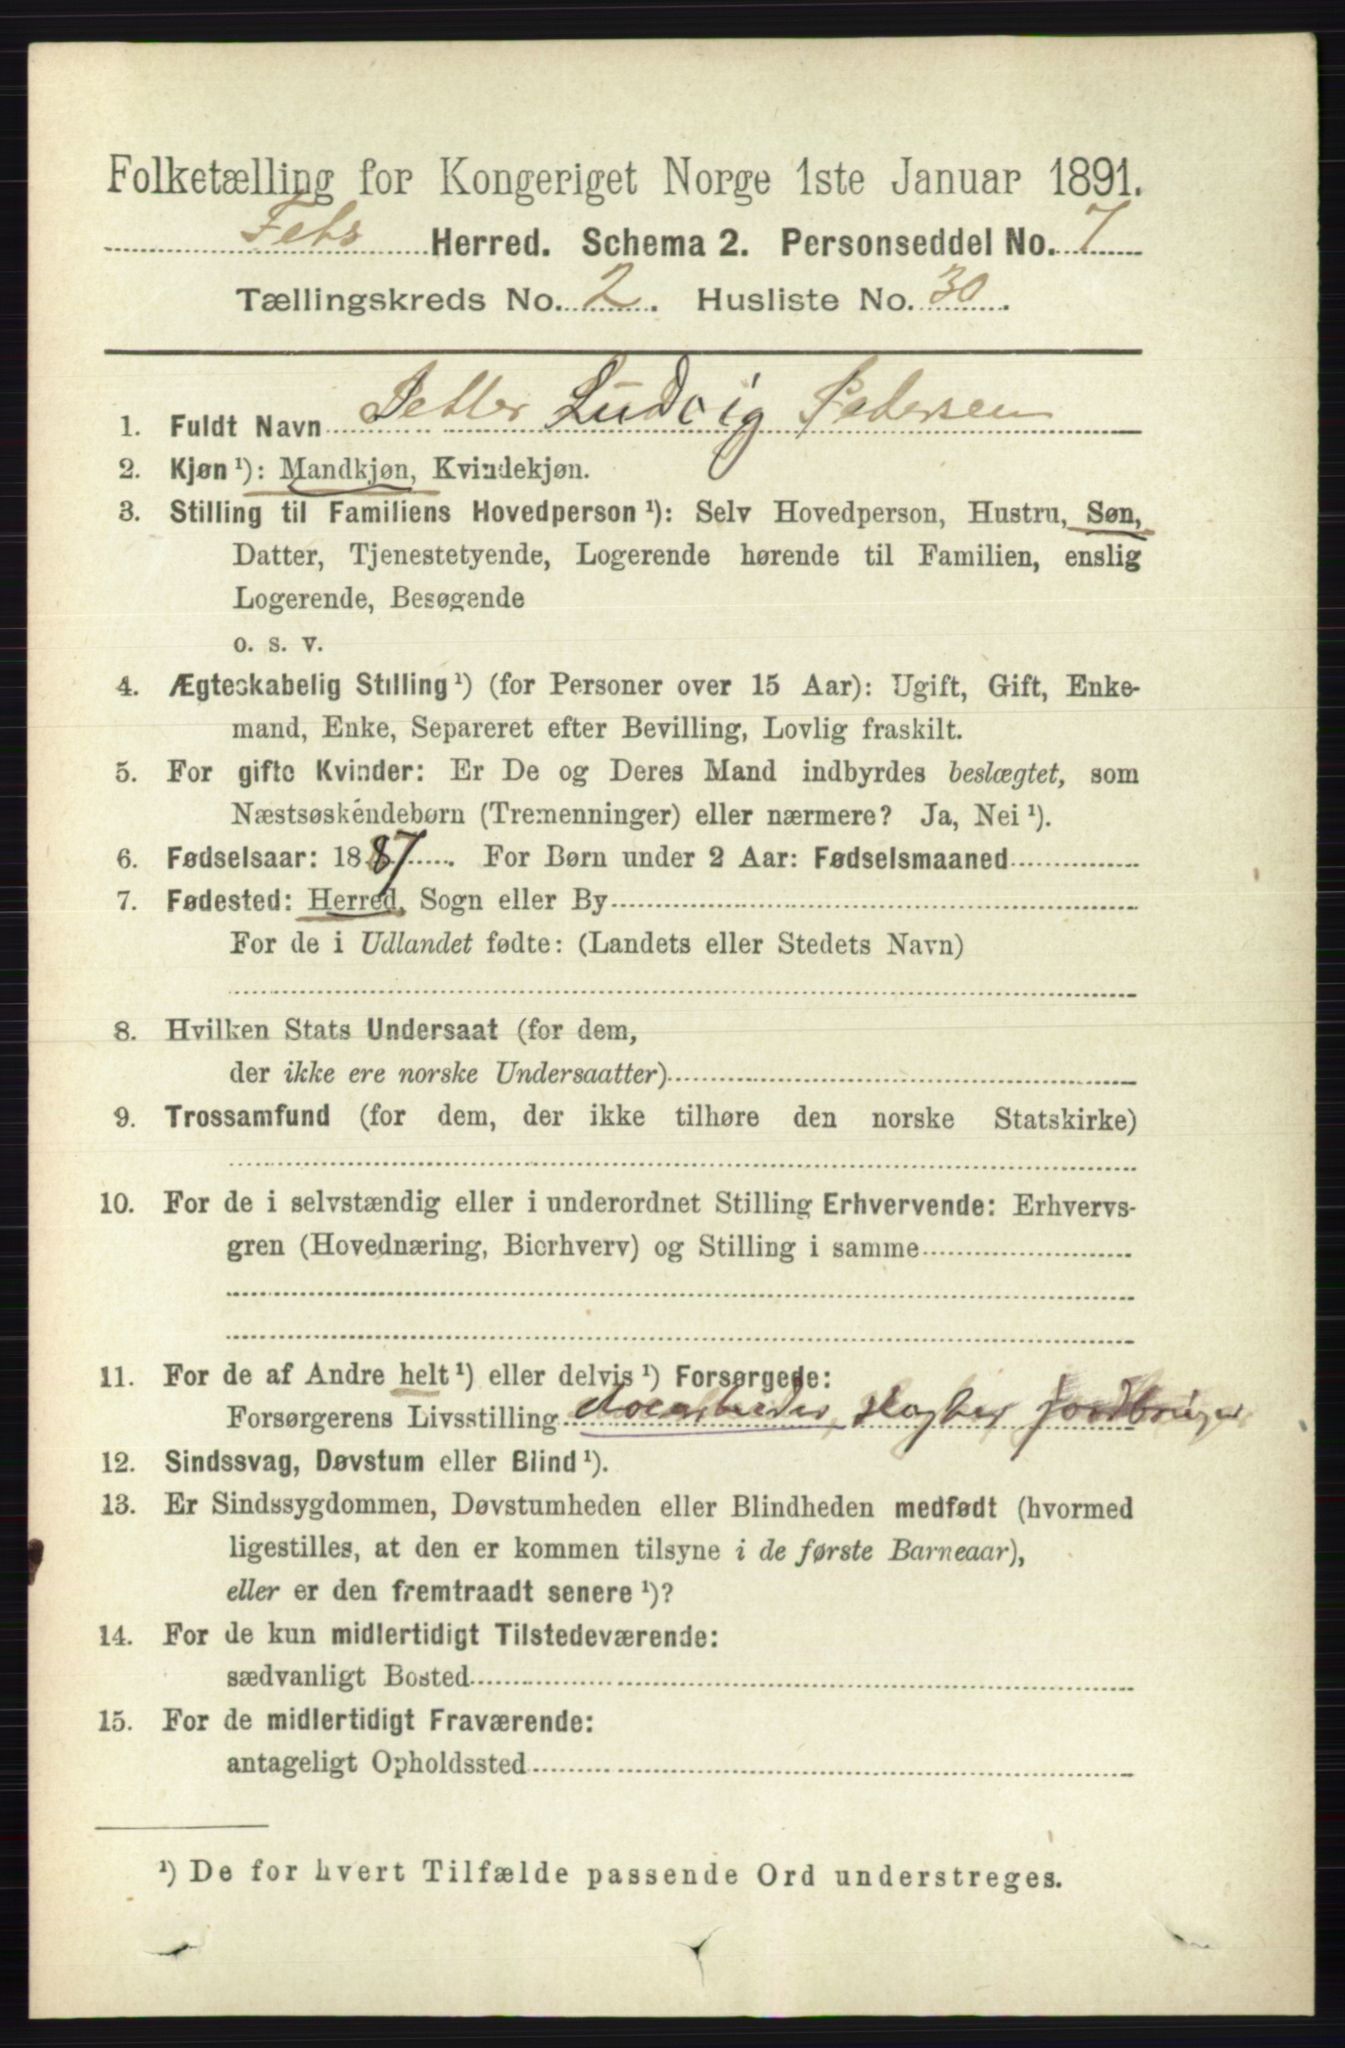 Folketælling for Kongeriget Norge 1ste Januar 1891.
Fets Herred. Schema 2. Personseddel No. 7
Tællingskreds No. 2. Husliste No. 30.
1. Fuldt Navn Ludvig Pedersen
2. Kjøn ¹): Mandkjøn, Kvindekjøn.
3. Stilling til Familiens Hovedperson ¹): Selv Hovedperson, Hustru, Søn,
Datter, Tjenestetyende, Logerende hørende til Familien, enslig
Logerende, Besøgende
o. s. v.
4. Ægteskabelig Stilling ¹) (for Personer over 15 Aar): Ugift, Gift, Enke-
mand, Enke, Separeret efter Bevilling, Lovlig fraskilt.
5. For gifte Kvinder: Er De og Deres Mand indbyrdes beslægtet, som
Næstsøskendebørn (Tremenninger) eller nærmere? Ja, Nei ¹).
6. Fødselsaar: 1887. For Børn under 2 Aar: Fødselsmaaned
7. Fødested: Herred, Sogn eller By
For de i Udlandet fødte: (Landets eller Stedets Navn)
8. Hvilken Stats Undersaat (for dem,
der ikke ere norske Undersaatter)
9. Trossamfund (for dem, der ikke tilhøre den norske Statskirke)
10. For de i selvstændig eller i underordnet Stilling Erhvervende: Erhvervs-
gren (Hovednæring, Bierhverv) og Stilling i samme
11. For de af Andre helt ¹) eller delvis ¹) Forsørgede:
Forsørgerens Livsstilling Jordbruger
12. Sindssvag, Døvstum eller Blind ¹).
13. Er Sindssygdommen, Døvstumheden eller Blindheden medfødt (hvormed
ligestilles, at den er kommen tilsyne i de første Barneaar),
eller er den fremtraadt senere ¹)?
14. For de kun midlertidigt Tilstedeværende:
sædvanligt Bosted
15. For de midlertidigt Fraværende:
antageligt Opholdssted
¹) De for hvert Tilfælde passende Ord understreges.